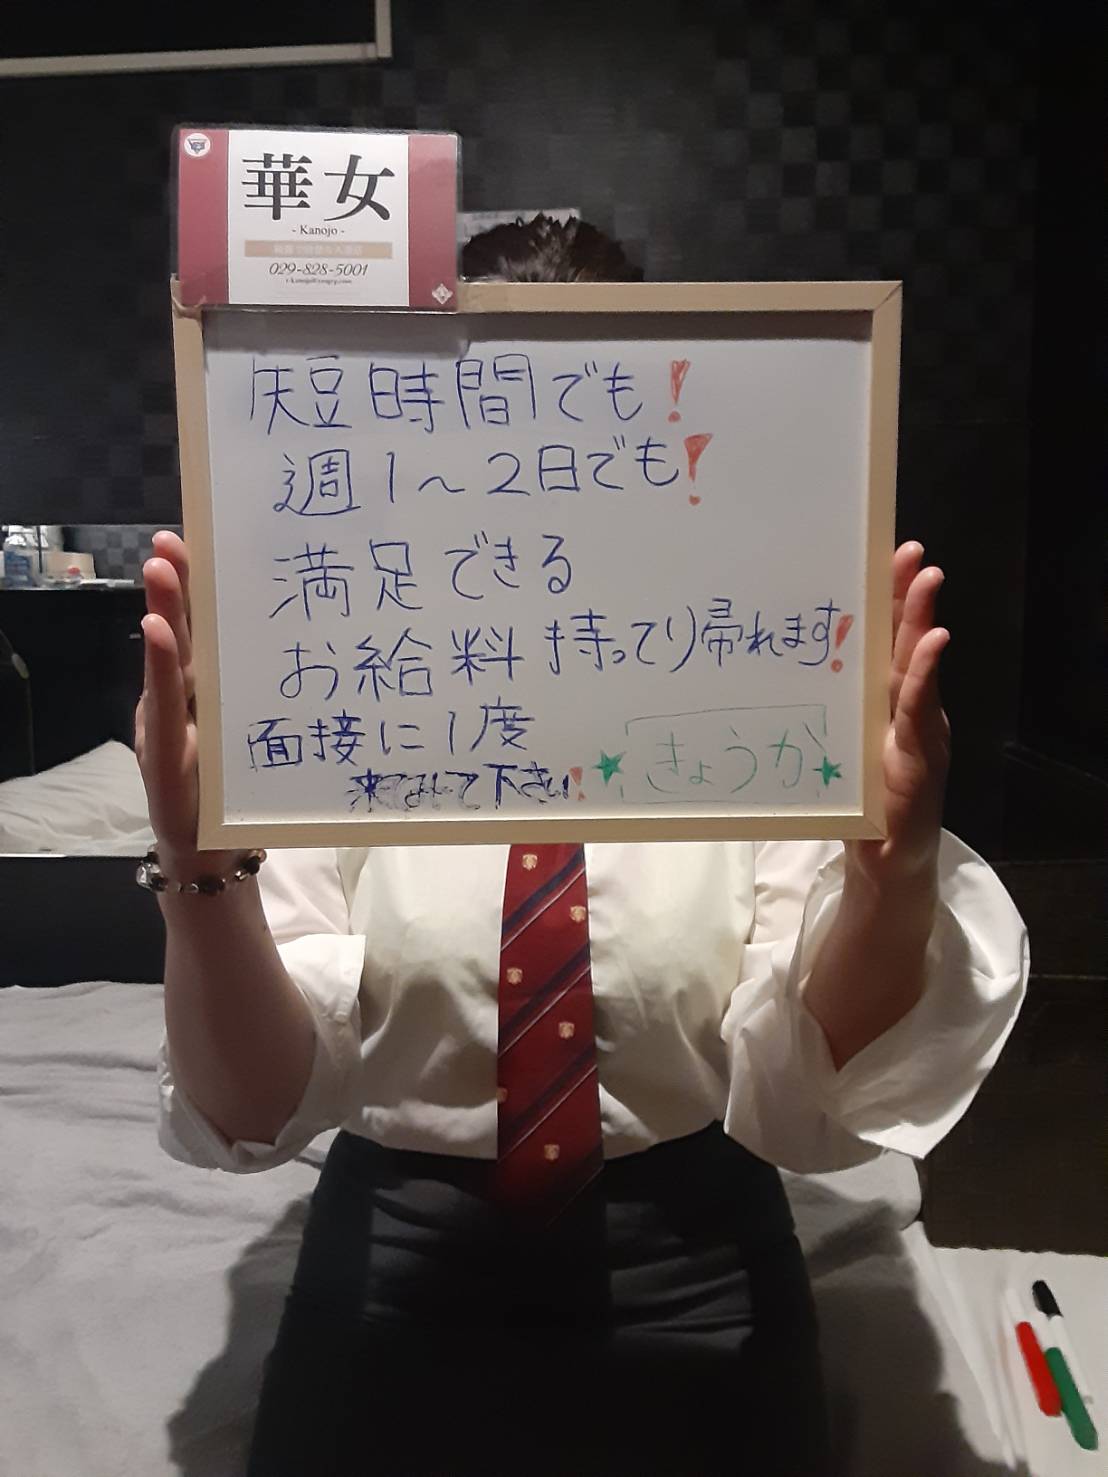 華女
- Kanojo -
029-828-5001
短時間でも!
週1〜2日でも!
満足できる
お給料持ってり帰れます!
面接に1度
来てみて下さい!
★きょうか★